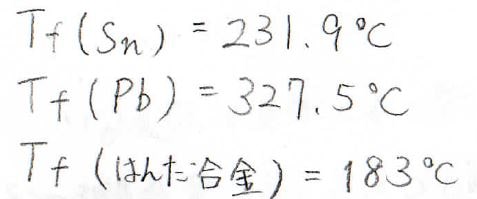 Tf(Sn) = 231.9℃
Tf(Pb) = 327.5℃
Tf(はんだ合金) = 183℃